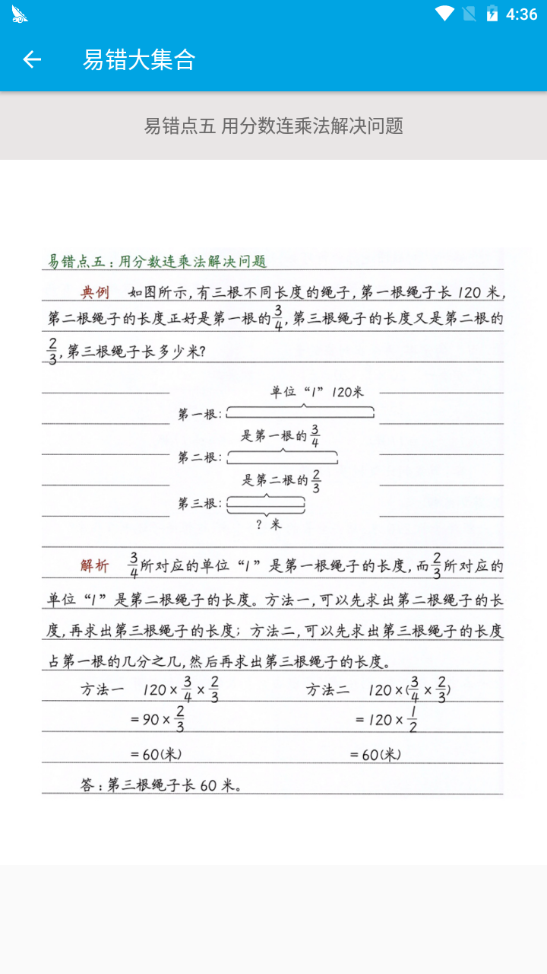 4:36
易错大集合
易错点五 用分数连乘法解决问题
易错点五：用分数连乘法解决问题
典例 如图所示,有三根不同长度的绳子,第一根绳子长 120 米,
第二根绳子的长度正好是第一根的3/4,第三根绳子的长度又是第二根的
2/3,第三根绳子长多少米?
单位“1”120米
第一根:
是第一根的3/4
第二根:
是第二根的2/3
第三根:
? 米
解析 3/4所对应的单位“1”是第一根绳子的长度,而2/3所对应的
单位“1”是第二根绳子的长度。方法一,可以先求出第二根绳子的长
度,再求出第三根绳子的长度;方法二,可以先求出第三根绳子的长度
占第一根的几分之几,然后再求出第三根绳子的长度。
方法一 120×3/4×2/3 方法二 120×(3/4×2/3)
=90×2/3 =120×1/2
=60(米) =60(米)
答:第三根绳子长 60 米。